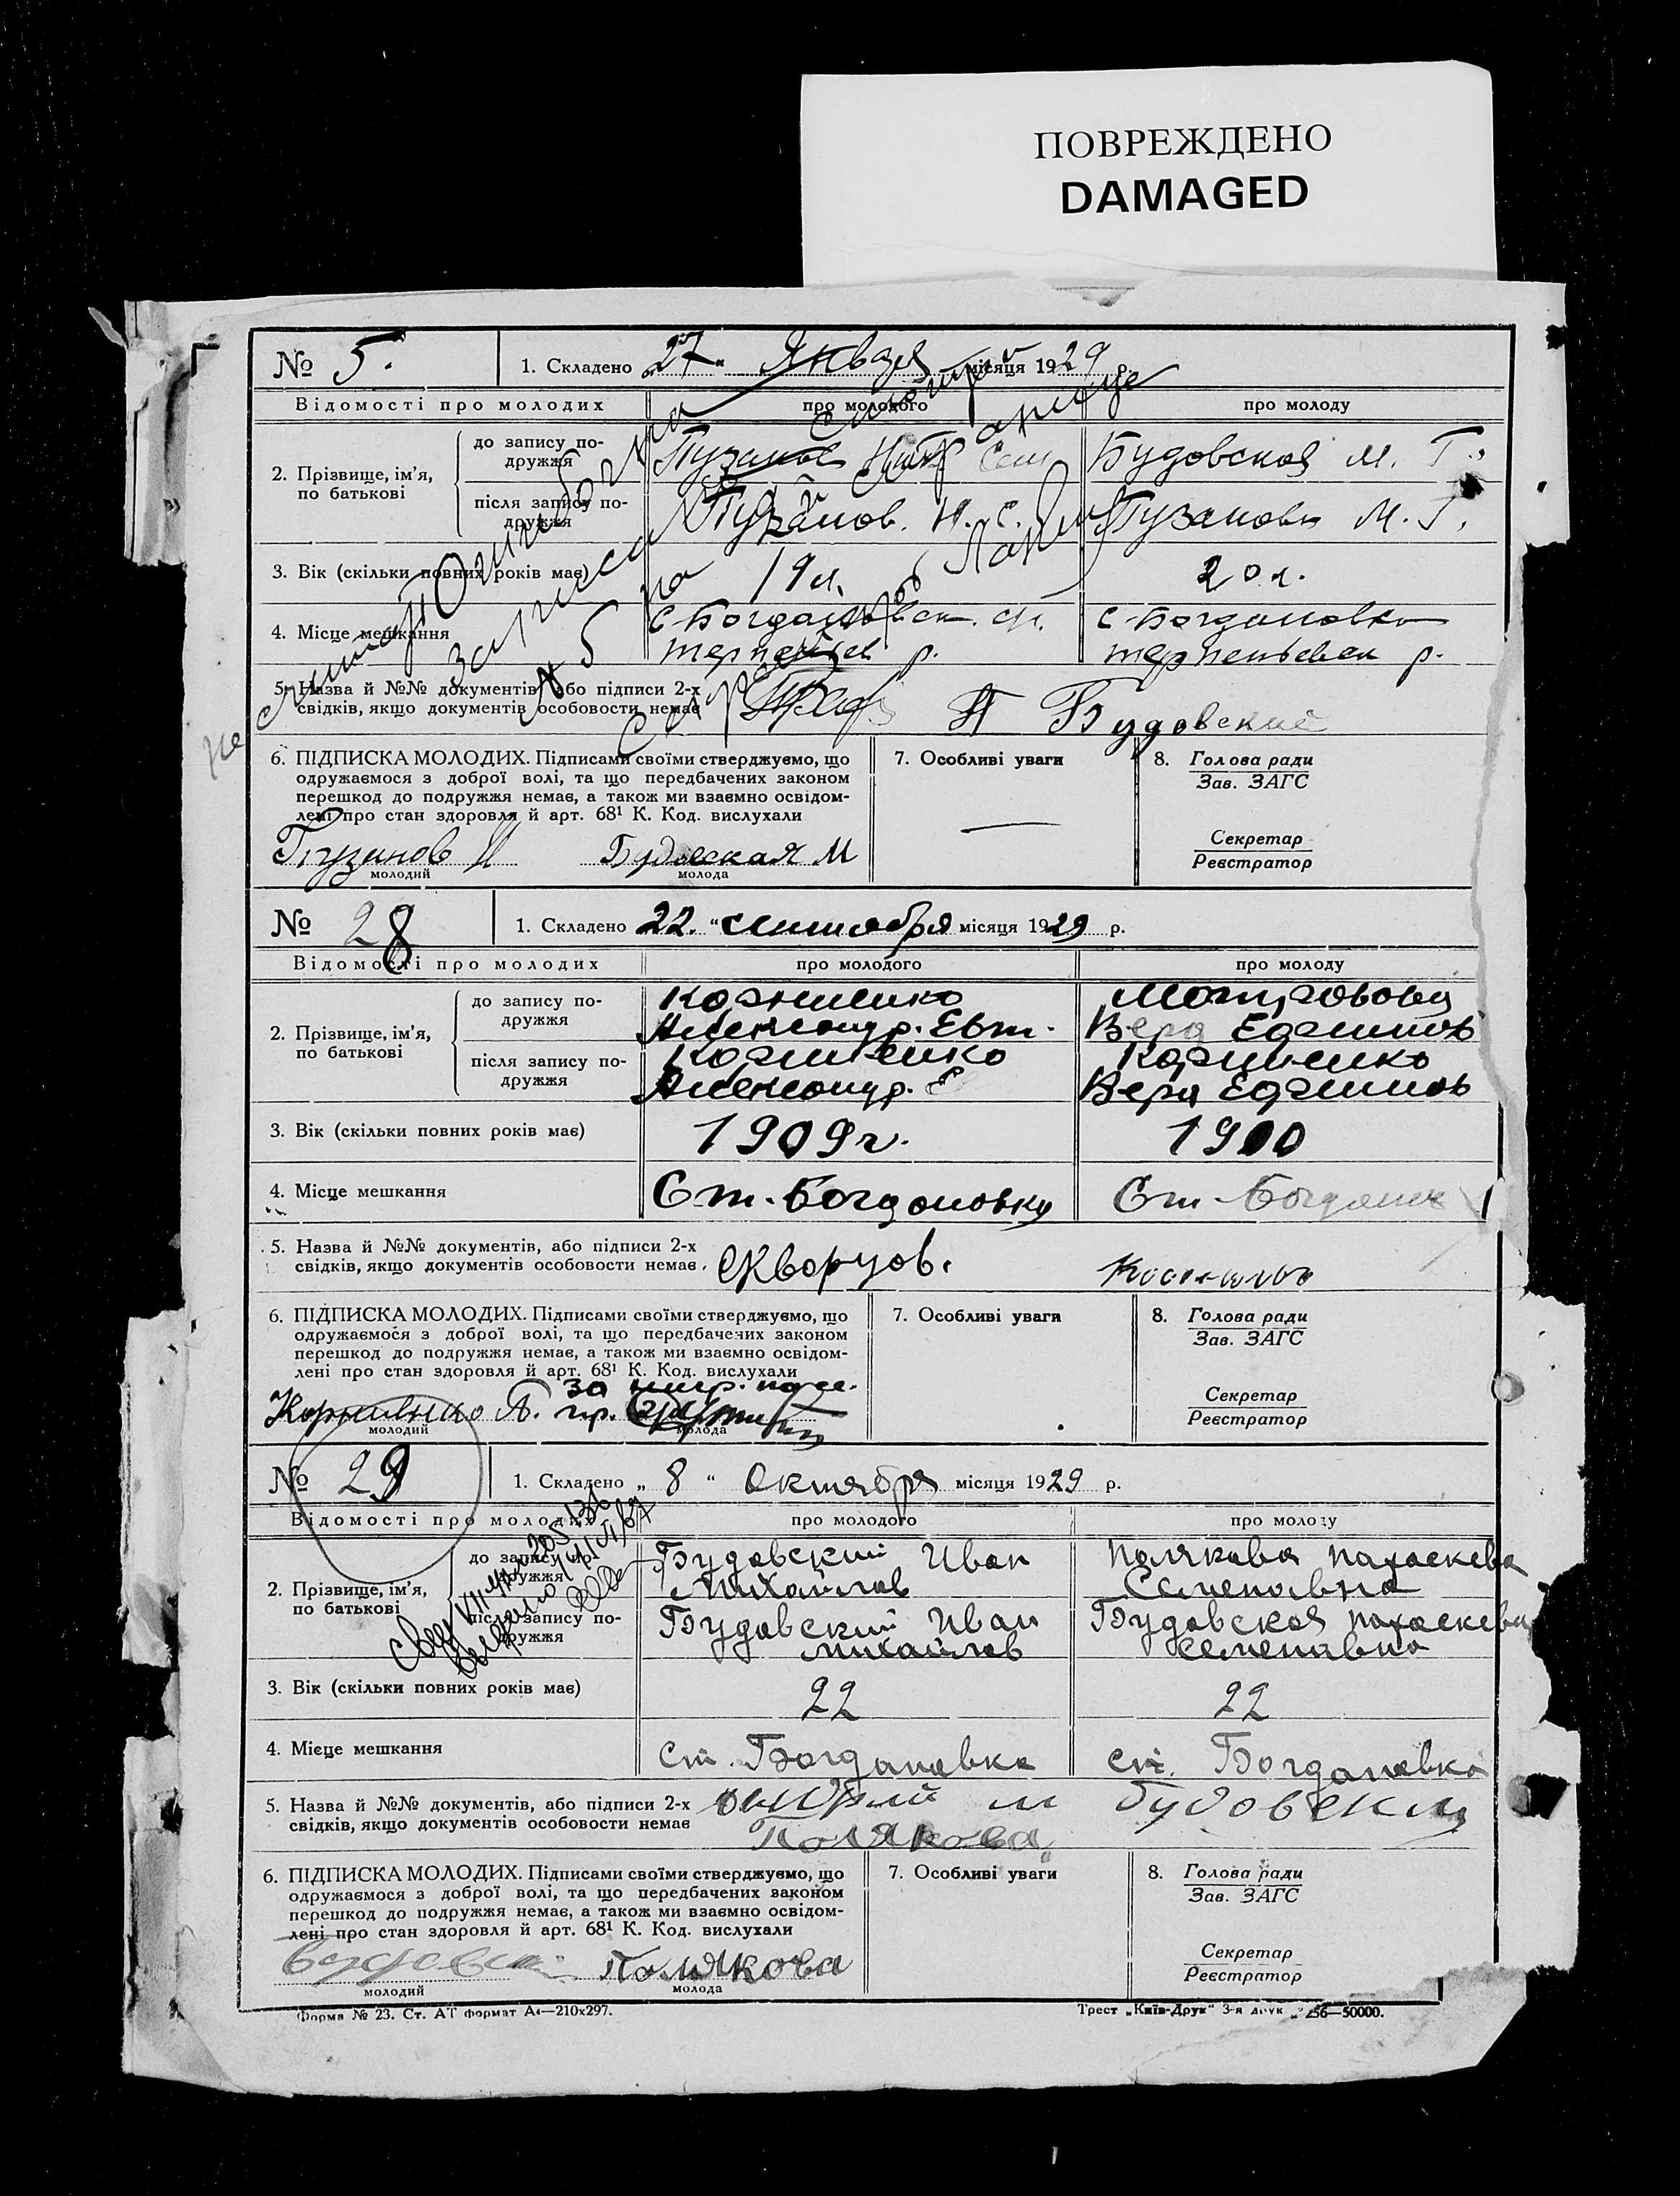 ПОВРЕЖДЕНО
DAMAGED
№ 5. 1. Складено „27“ Января місяця 1929 р.
Відомості про молодих про молодого про молоду
2. Прізвище, ім'я, по батькові
до запису подружжя Пузанов Будовская М. Г.
після запису подружжя Пузанов. Н. С. Пузанова М. Г.
3. Вік (скільки повних років має) 19 л. 20 л.
4. Місце мешкання с-Богдановск. с-Богдановка
р. терпеньевск р.
5. Назва й №№ документів, або підписи 2-х
свідків, якщо документів особовости немає Будовский
Не считать
Ошибочна
записа
№ 5
6. ПІДПИСКА МОЛОДИХ. Підписами своїми стверджуємо, що 7. Особливі уваги 8. Голова ради
одружаємося з доброї волі, та що передбачених законом Зав. ЗАГС
перешкод до подружжя немає, а також ми взаємно освідом-
лені про стан здоровля й арт. 68¹ К. Код. вислухали Секретар
Пузанов Н Будовская М Реєстратор
молодий молода
№ 28 1. Складено 22. “ сентября місяця 1929 р.
Відомості про молодих про молодого про молоду
2. Прізвище, ім'я, по батькові
до запису подружжя Корниенко
Александр. Евт. Вера
після запису подружжя Корниенко Корниенко
Александр. Е Вера
3. Вік (скільки повних років має) 1909 г. 1900
4. Місце мешкання Ст. Богдановка Ст Богданов
5. Назва й №№ документів, або підписи 2-х
свідків, якщо документів особовости немає. Скворцов.
6. ПІДПИСКА МОЛОДИХ. Підписами своїми стверджуємо, що 7. Особливі уваги 8. Голова ради
одружаємося з доброї волі, та що передбачених законом Зав. ЗАГС
перешкод до подружжя немає, а також ми взаємно освідом-
лені про стан здоровля й арт. 68¹ К. Код. вислухали Секретар
за
Корниенко А. Реєстратор
молодий молода
№ 29 1. Складено „ 8 “ Октября місяця 1929 р.
Відомості про молодих про молодого про молоду
2. Прізвище, ім'я, по батькові
до запису подружжя Будовский Иван Полякова Параскева
Михайлов Семеновна
після запису подружжя Будовский Иван Будовская Параскева
михайлов семеновна
3. Вік (скільки повних років має) 22 22
4. Місце мешкання ст. Богдановка ст. Богдановка
5. Назва й №№ документів, або підписи 2-х Будовский
свідків, якщо документів особовости немає Полякова
6. ПІДПИСКА МОЛОДИХ. Підписами своїми стверджуємо, що 7. Особливі уваги 8. Голова ради
одружаємося з доброї волі, та що передбачених законом Зав. ЗАГС
перешкод до подружжя немає, а також ми взаємно освідом-
лені про стан здоровля й арт. 68¹ К. Код. вислухали Секретар
Полякова Реєстратор
молодий молода
Форма № 23. Ст. АТ формат А4—210х297. Трест „Київ-Друк“ 3-я друк